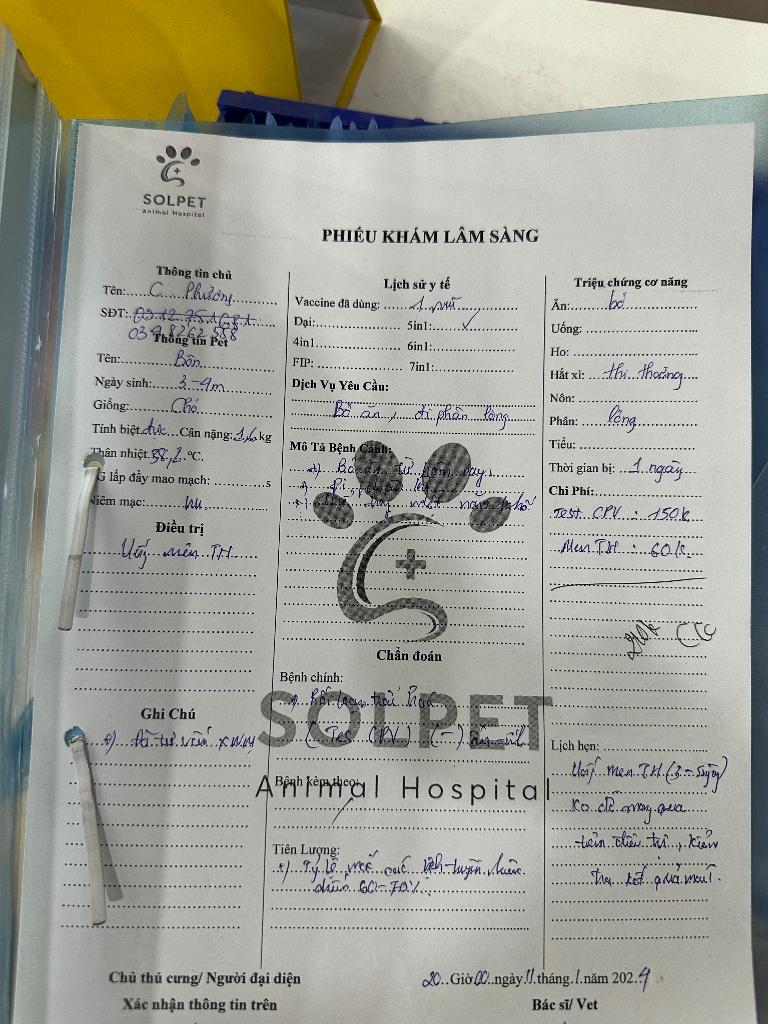 SOLPET
Animal Hospital
PHIẾU KHÁM LÂM SÀNG
Thông tin chủ
Tên: C. Phương
SĐT: 0912.751681
0378262558
Thông tin Pet
Tên: Bôn
Ngày sinh: 3-4m
Giống: Chó
Tính biệt: đực Cân nặng: 1,6 kg
Thân nhiệt: 38,2 ºC.
G lấp đầy mao mạch: s
Niêm mạc:
Điều trị
Uống men TH
Ghi Chú
+) Đã tư vấn
Lịch sử y tế
Vaccine đã dùng: 1 mũi
Dại: 5in1: ✓
4in1 6in1:
FIP: 7in1:
Dịch Vụ Yêu Cầu:
Bỏ ăn, đi phân lỏng
Mô Tả Bệnh Cảnh:
+) Bỏ ăn từ hôm nay
Chẩn đoán
Bệnh chính:
Rối loạn tiêu hoá
(Test CPV) (-) âm tính
SOLPET
Animal Hospital
Bệnh kèm theo:
Tiên Lượng:
+) Tỷ lệ mắc các bệnh truyền nhiễm
60-70%.
Triệu chứng cơ năng
Ăn: bỏ
Uống:
Ho:
Hắt xì: thi thoảng
Nôn:
Phân: lỏng
Tiểu:
Thời gian bị: 1 ngày
Chi Phí:
Test CPV : 150k
Men TH : 60k
210k
Lịch hẹn:
Uống men TH (3-5 ngày)
ko đỡ mang qua
điều trị, kiểm
tra kết quả máu.
Chủ thú cưng/ Người đại diện
Xác nhận thông tin trên
20 Giờ 00 ngày 11 tháng 1 năm 2024
Bác sĩ/ Vet